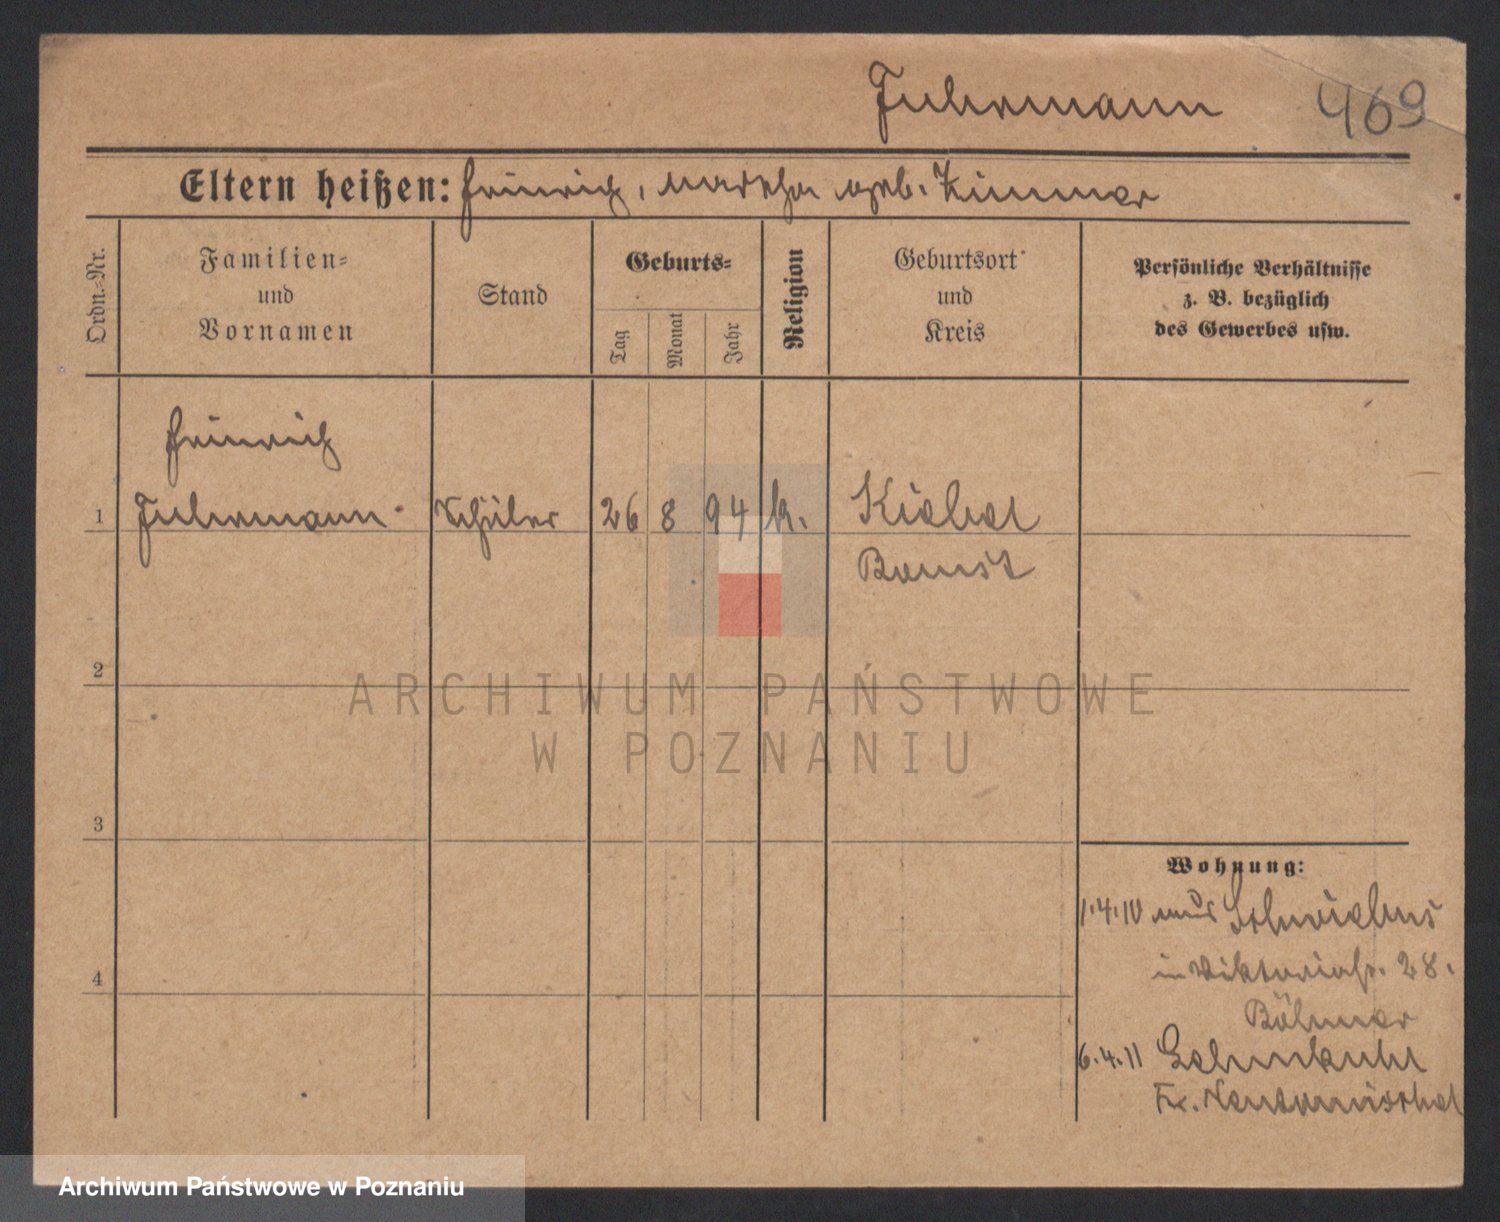 Fuhrmann 469
Eltern heißen: Heinrich, Martha geb. Zimmer
Ordn.-Nr.
Familien-
und
Vornamen
Stand
Geburts-
Tag
Monat
Jahr
Religion
Geburtsort
und
Kreis
Persönliche Verhältnisse
z. B. bezüglich
des Gewerbes usw.
Heinrich
1 Fuhrmann Schüler 26 8 94 k. Kiebel
Bomst
2
ARCHIWUM PAŃSTWOWE
W POZNANIU
3
Wohnung:
1.4.10 aus Schwiebus
4
in Viktoriastr. 28.
Böhmer
6.4.11
Kr. Neutomischel
Archiwum Państwowe w Poznaniu